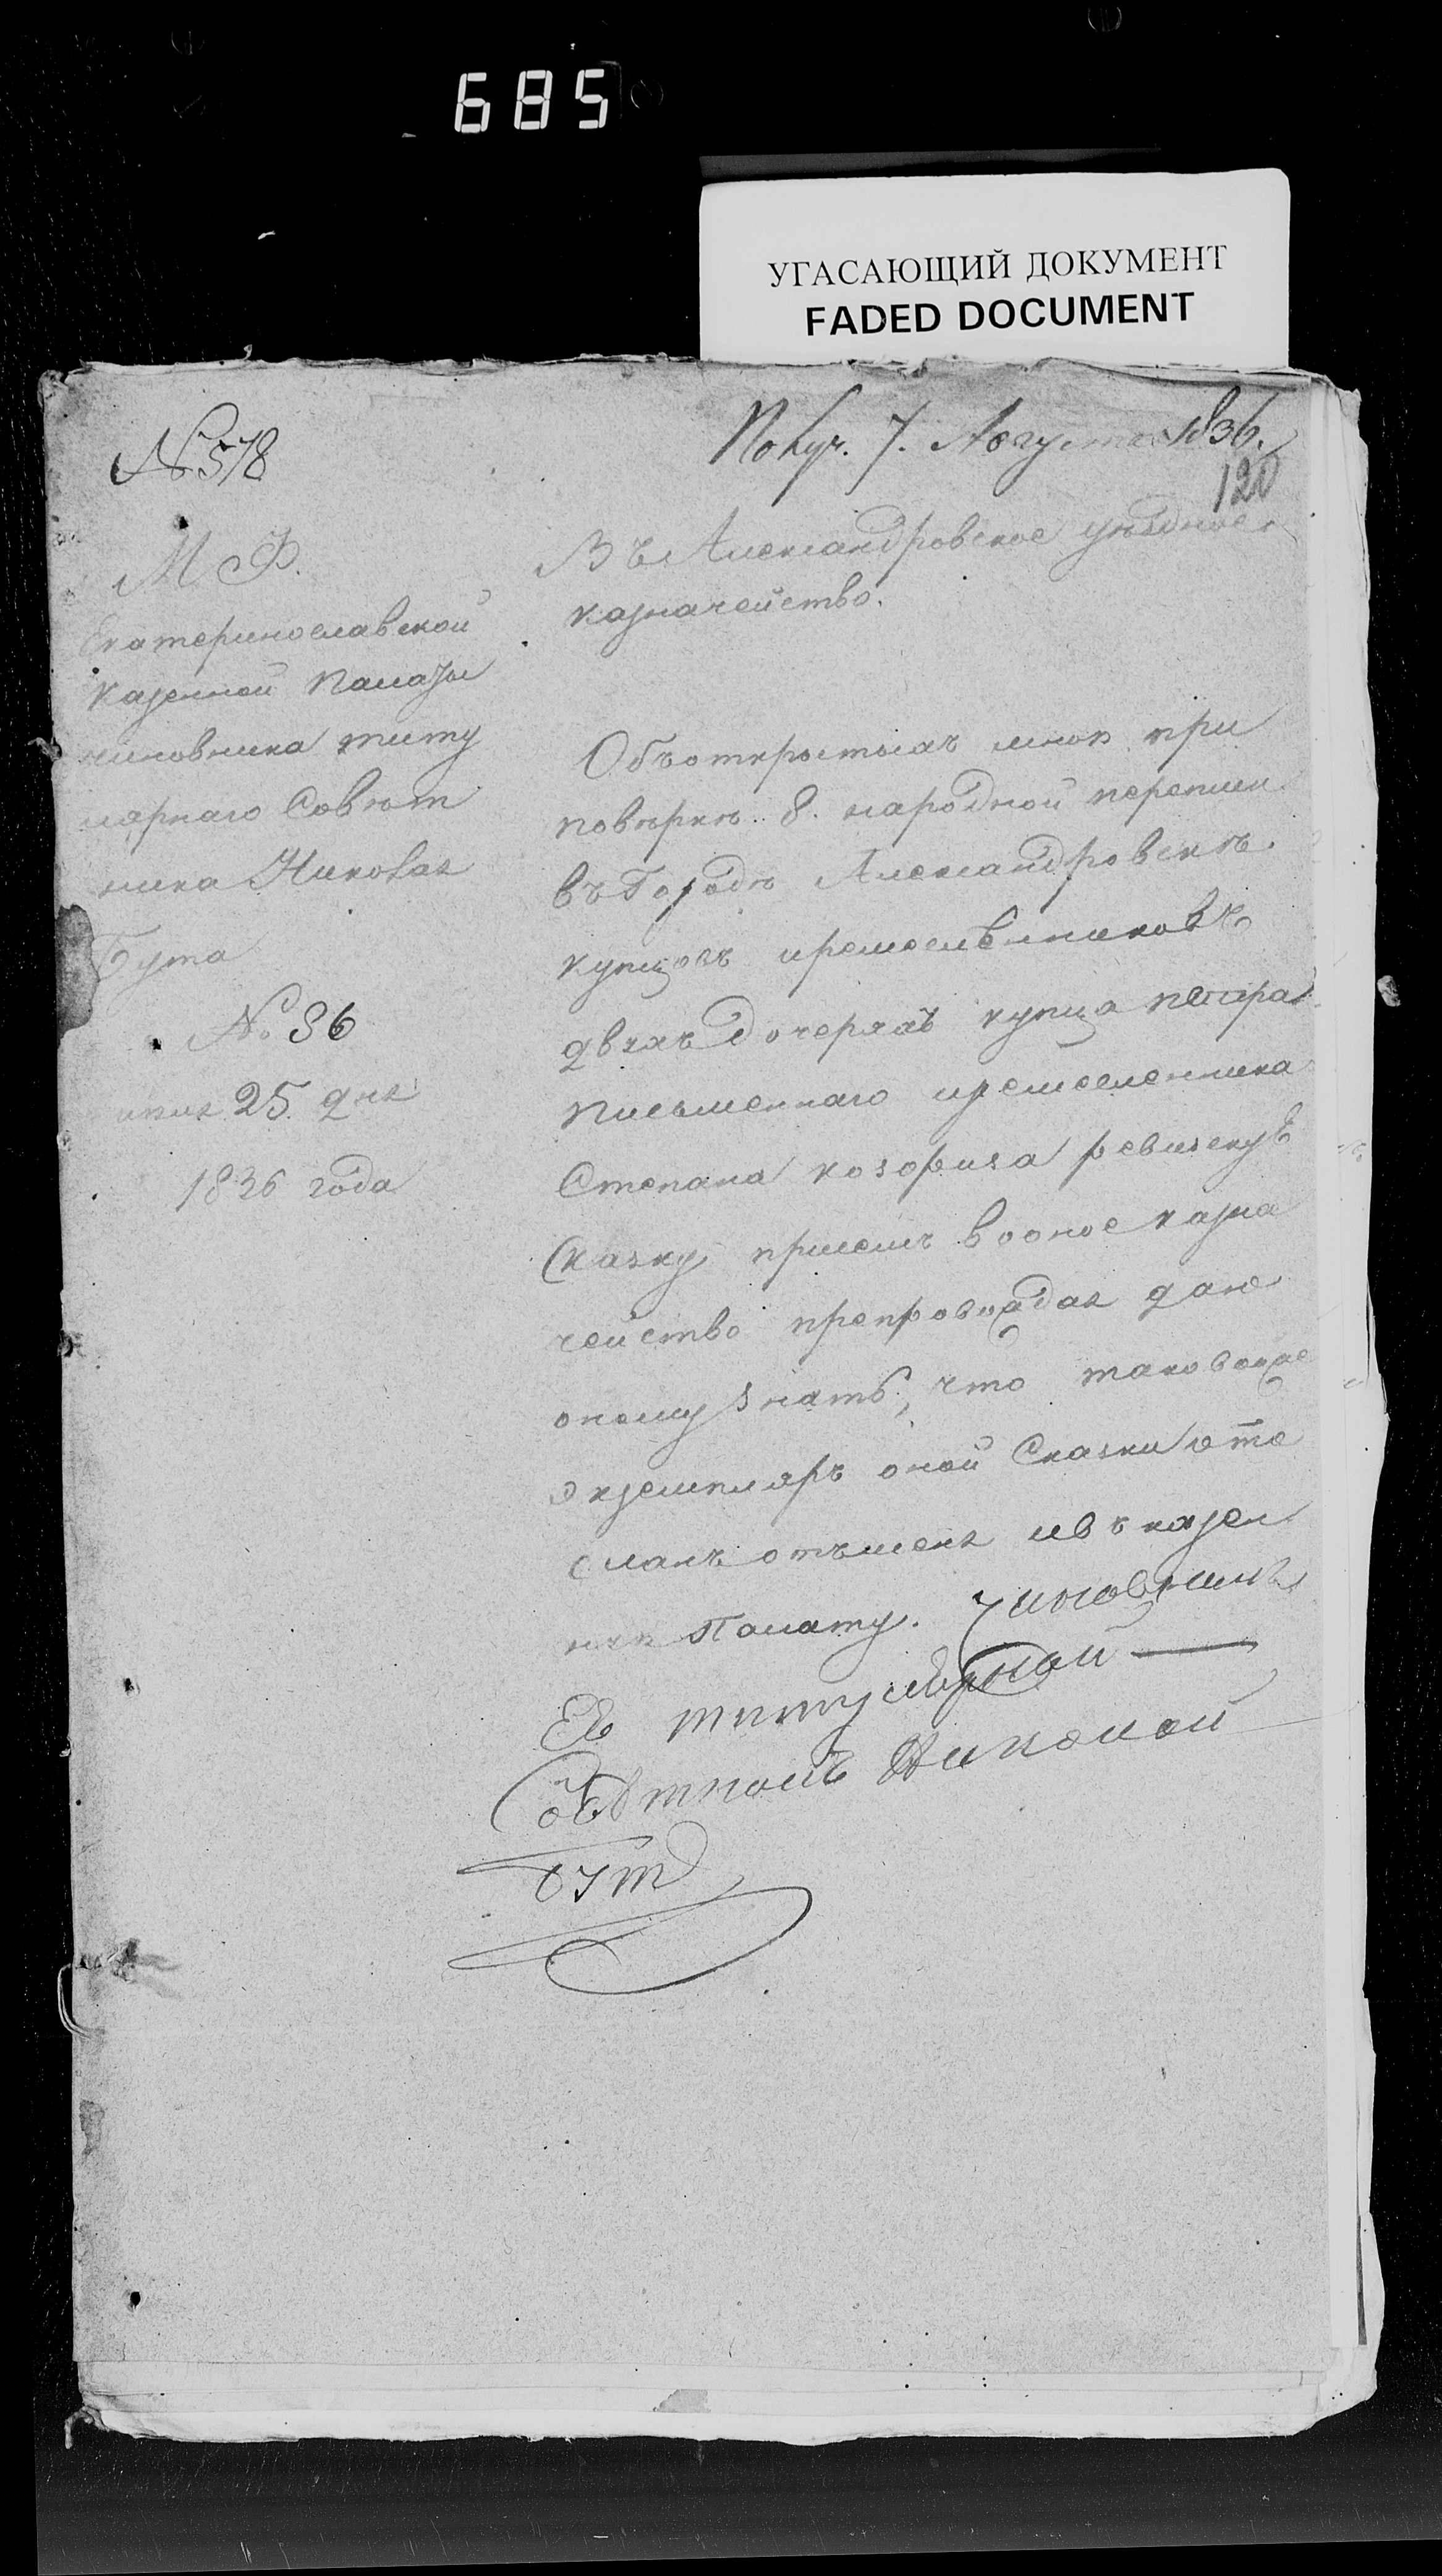 685
УГАСАЮЩИЙ ДОКУМЕНТ
FADED DOCUMENT
№ 578
Получ. 7. Августа 1836.
120
М Ф.
Екатеринославской
казенной палаты
чиновника титу
лярнаго Совѣт
ника Николая
Бута
№ 36
июля 25 дня
1836 года
Въ Александровское уѣздное
казначейство.
Объ открытыхъ мною при
повѣркѣ 8. народной переписи
въ Городѣ Александровскѣ
купцовъ иремесленниковъ
двухъ дочеряхъ купца Петра
Письменнаго иремесленника
Степана ревизскую
Сказку при семъ вооное казна
чейство препровождая даю
оному знать, что таковойже
экземпляръ оной Сказки ото
сланъ отъменя ивъ казен
ную Палату. Чиновникъ
Ея титулярной
Совѣтникъ Николай
Бутъ